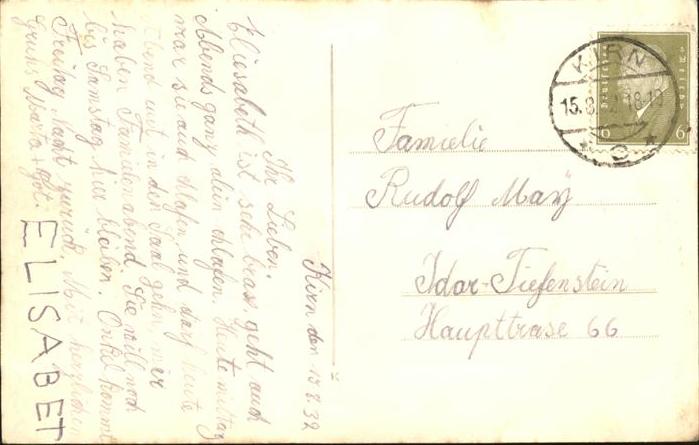 Kirn den 15.8.32
Ihr Lieben.
Elisabeth ist sehr brav, geht auch
Abends ganz alein schlafen. Heute mittag
war sie auch schlafen, und darf heute
Abend mit in den Saal gehn, wir
haben Familienabend. Sie will noch
bis Samstag hier bleiben. Onkel kommt
Freitag Nacht zurück. Mit herzlichen
Gruhs Marta +
ELISABET
Familie
Rudolf May
Idar-Tiefenstein
Haupttrase 66
KIRN
15.8. 18-19
Deutsches Reich
6 6